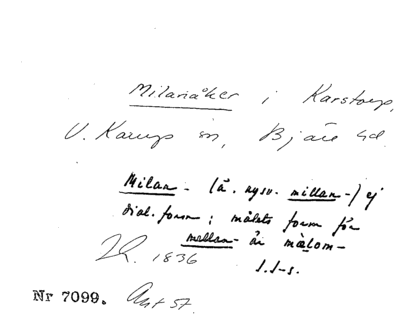 Milanåker i Karstorp,
V. Karup sn, Bjäre hd.
Milan- (ä. nysv. millan-) ej
dial. form; målets form för
mellan- är mälom-
1836
I.I-s.
Nr 7099. Akt 57.